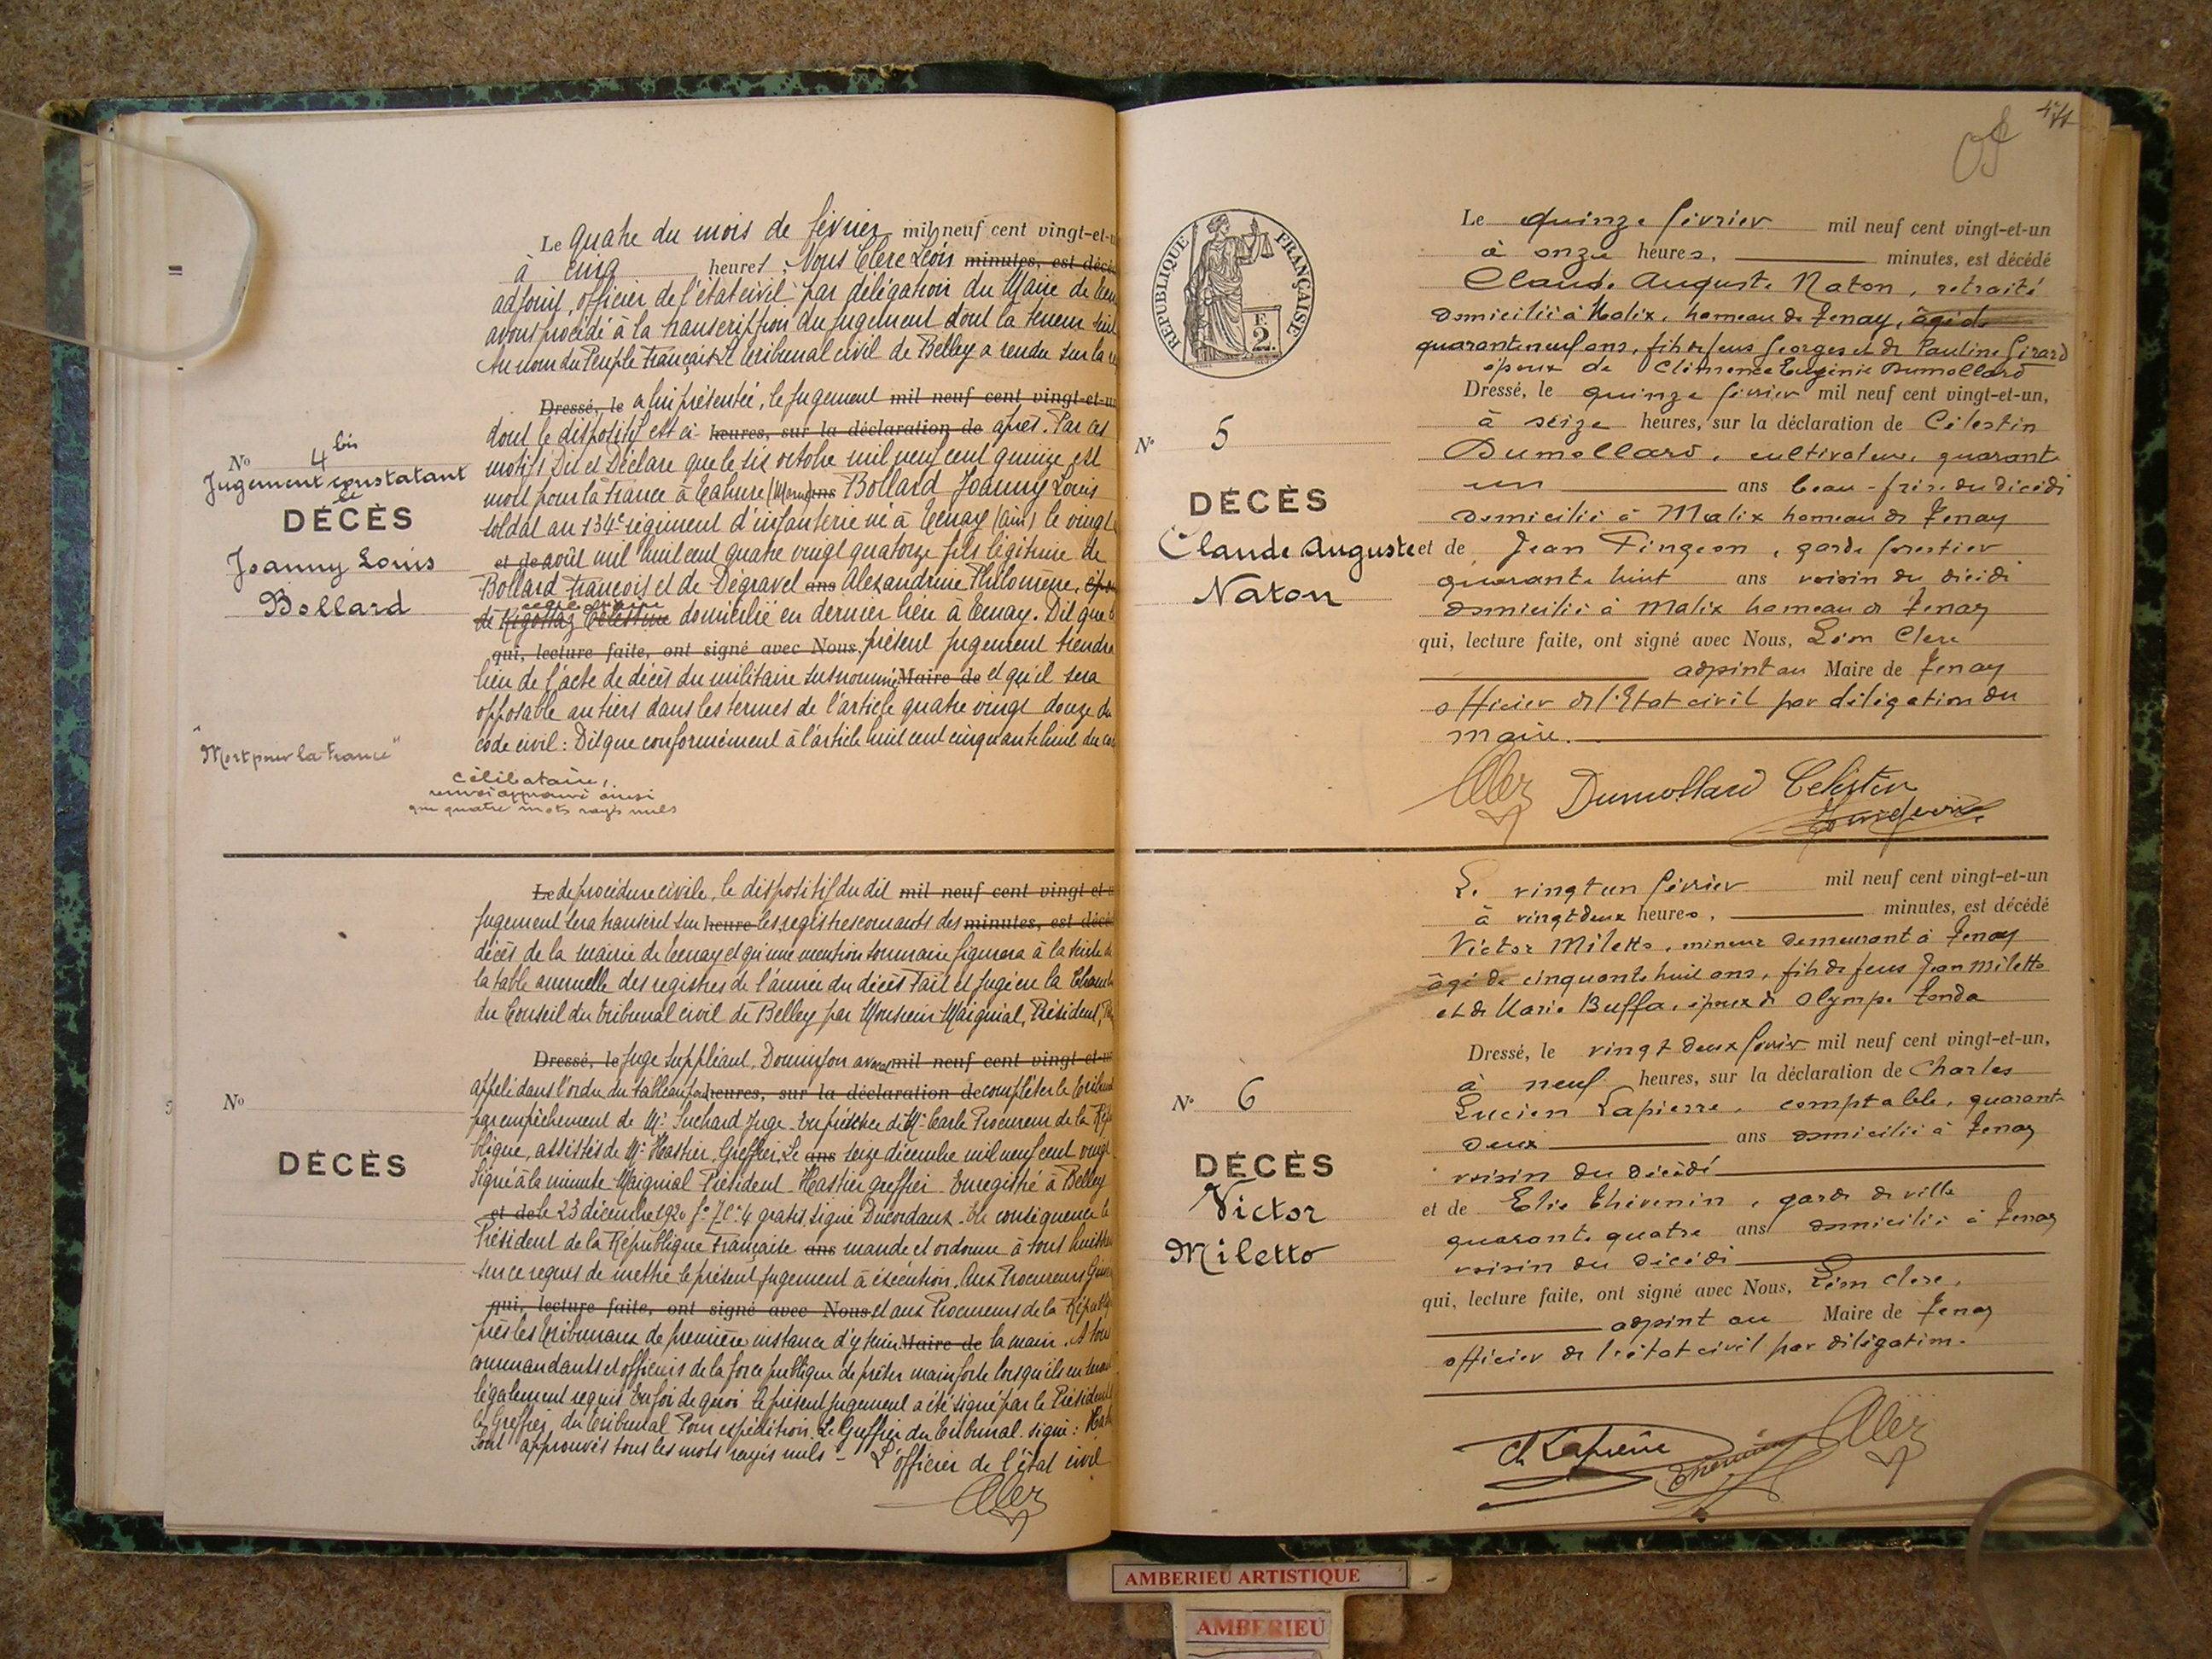 Le quatre du mois de février mil neuf cent vingt-et-u
à cinq heures, Nous Clerc Léon minutes, est décé
adjoint, officier de l'état civil par délégation du Maire de Ten
avons procédé à la transcription du jugement dont la teneur suit
Au nom du Peuple Français. Le tribunal civil de Belley a rendu sur la re
Dressé, le a lui présentée, le jugement mil neuf cent vingt-et-u
dont le dispositif est ci- heures, sur la déclaration de après. Par ces
motifs Dit et Déclare que le six octobre mil neuf cent quinze est
mort pour la France à Tahure (Marne) ans Bollard Joanny Louis
soldat au 134e régiment d'infanterie né à Tenay (Ain) le vingt
et de août mil huit cent quatre vingt quatorze fils légitime de
Bollard François et de Dégravel ans Alexandrine Philomène, époux
de Rigottaz Célestine domicilié en dernier lieu à Tenay. Dit que le
qui, lecture faite, ont signé avec Nous, présent jugement tiendra
lieu de l'acte de décès du militaire susnommé Maire de et qu'il sera
opposable au tiers dans les termes de l'article quatre vingt douze du
code civil : Dit que conformément à l'article huit cent cinquante huit du co
N° 4 bis
Jugement constatant
le
DÉCÈS
Joanny Louis
Bollard
"Mort pour la France"
célibataire,
renvoi approuvé ainsi
que quatre mots rayés nuls
Le de procédure civile, le dispositif du dit mil neuf cent vingt-et-u
jugement sera transcrit sur heure les registres courants des minutes, est décé
décès de la mairie de Tenay et qu'une mention sommaire figurera à la suite de
la table annuelle des registres de l'année du décès. Fait et jugé en la Chamb
du Conseil du tribunal civil de Belley par Monsieur Maignial, Président,
Dressé, le juge suppléant, Dominjon avocat mil neuf cent vingt-et-u
appelé dans l'ordre du tableau pour heures, sur la déclaration de compléter le tribunal
par empêchement de Mr Suchard Juge. En présence de Mr Carle Procureur de la Rép
blique, assistés de Mr Hastier, Greffier, Le ans seize décembre mil neuf cent vingt
Signé à la minute Maignial Président. Hastier greffier. Enregistré à Belley
et de le 23 décembre 1920 f° 7 C. 4 gratis signé Ducordaux. En conséquence le
Président de la République Française ans mande et ordonne à tous huissi
sur ce requis de mettre le présent jugement à exécution. Aux Procureurs Géné
qui, lecture faite, ont signé avec Nous et aux Procureurs de la Républi
près les tribunaux de première instance d'y tenir Maire de la main. A tous
commandants et officiers de la force publique de prêter main forte lorsqu'ils en seront
légalement requis. En foi de quoi le présent jugement a été signé par le Président
le Greffier du tribunal Pour expédition. Le Greffier du tribunal. signé : Hast
Sont approuvés tous les mots rayés nuls - L'officier de l'état civil
Clerc
N°
DÉCÈS
RÉPUBLIQUE FRANÇAISE
2 F.
Le quinze février mil neuf cent vingt-et-un
à onze heures, minutes, est décédé
Claude Auguste Naton, retraité
domicilié à Malix, hameau de Tenay, âgé de
quarante neuf ans, fils de feus Georges et de Pauline Girard
époux de Clémence Eugénie Dumollard
Dressé, le quinze février mil neuf cent vingt-et-un,
à seize heures, sur la déclaration de Célestin
Dumollard, cultivateur, quarante
un ans beau-frère du décédé
domicilié à Malix hameau de Tenay
et de Jean Pingeon, garde forestier
quarante huit ans voisin du décédé
domicilié à Malix hameau de Tenay
qui, lecture faite, ont signé avec Nous, Léon Clerc
adjoint au Maire de Tenay
officier de l'Etat civil par délégation du
maire.
Clerc Dumollard Celestin
N° 5
DÉCÈS
Claude Auguste
Naton
Le vingt un février mil neuf cent vingt-et-un
à vingt deux heures, minutes, est décédé
Victor Miletto, mineur demeurant à Tenay
âgé de cinquante huit ans, fils de feus Jean Miletto
et de Marie Buffa, époux de Olympe Tonda
Dressé, le vingt deux février mil neuf cent vingt-et-un,
à neuf heures, sur la déclaration de Charles
Lucien Lapierre, comptable, quarante
deux ans domicilié à Tenay
voisin du décédé
et de Elie Thévenin, garde de ville
quarante quatre ans domicilié à Tenay
voisin du décédé
qui, lecture faite, ont signé avec Nous, Léon Clerc,
adjoint au Maire de Tenay
officier de l'état civil par délégation.
Ch Lapierre Thévenin Clerc
N° 6
DÉCÈS
Victor
Miletto
AMBERIEU ARTISTIQUE
AMBERIEU